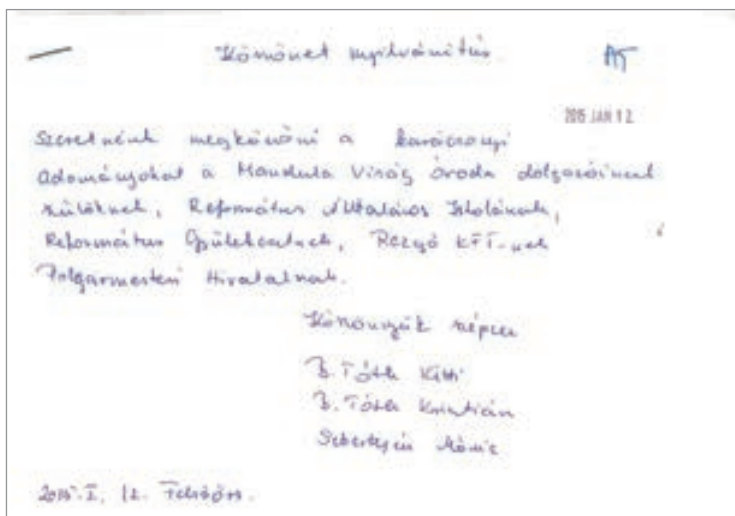 Köszönet nyilvánítás
2015 JAN 12.
Szeretnénk megköszönni a karácsonyi
adományokat a Mandula Virág Óvoda dolgozóinak
szülöknek, Református Általános Iskolának,
Református Gyülekezetnek, Rezgő KFT-nek
Polgármesteri Hivatalnak.
Köszönjük szépen
B. Tóth Kitti
B. Tóth Krisztián
Mária
2015. I. 12. Felsőörs.